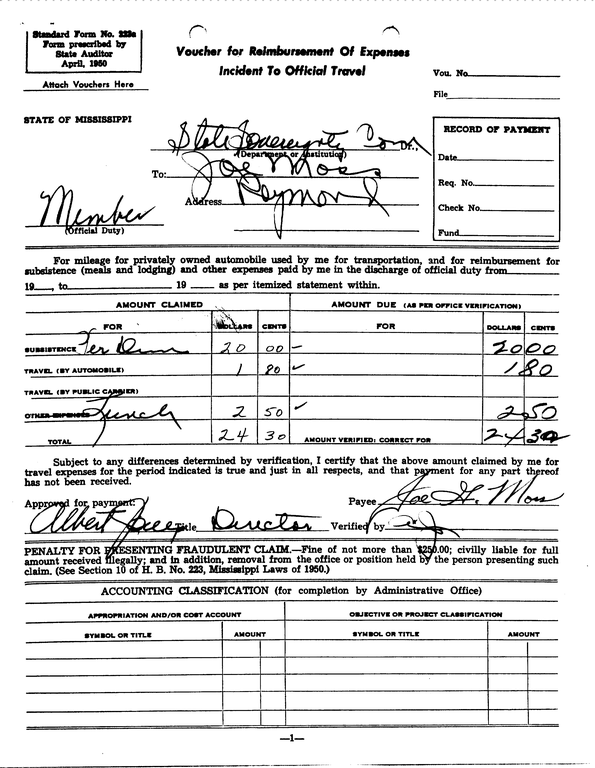 Standard Form No. 223a
Form prescribed by
State Auditor
April, 1950
Attach Vouchers Here
Voucher for Reimbursement Of Expenses
Incident To Official Travel
Vou. No.
File
STATE OF MISSISSIPPI
State Sovereignty Com Dr.,
(Department or Institution)
To: Joe Moss
Address Raymond
Member
(Official Duty)
RECORD OF PAYMENT
Date
Req. No.
Check No.
Fund
For mileage for privately owned automobile used by me for transportation, and for reimbursement for
subsistence (meals and lodging) and other expenses paid by me in the discharge of official duty from
19___, to 19 ___ as per itemized statement within.
AMOUNT CLAIMED AMOUNT DUE (AS PER OFFICE VERIFICATION)
FOR DOLLARS CENTS FOR DOLLARS CENTS
SUBSISTENCE Per Diem 20 00 – 20 00
TRAVEL (BY AUTOMOBILE) 1 80 ✓ 1 80
TRAVEL (BY PUBLIC CARRIER)
OTHER EXPENSES Lunch 2 50 ✓ 2 50
TOTAL 24 30 AMOUNT VERIFIED: CORRECT FOR 24 30
Subject to any differences determined by verification, I certify that the above amount claimed by me for
travel expenses for the period indicated is true and just in all respects, and that payment for any part thereof
has not been received.
Approved for payment: Payee Joe H. Moss
Albert Title Director Verified by
PENALTY FOR PRESENTING FRAUDULENT CLAIM.—Fine of not more than $250.00; civilly liable for full
amount received illegally; and in addition, removal from the office or position held by the person presenting such
claim. (See Section 10 of H. B. No. 223, Mississippi Laws of 1950.)
ACCOUNTING CLASSIFICATION (for completion by Administrative Office)
APPROPRIATION AND/OR COST ACCOUNT OBJECTIVE OR PROJECT CLASSIFICATION
SYMBOL OR TITLE AMOUNT SYMBOL OR TITLE AMOUNT
—1—